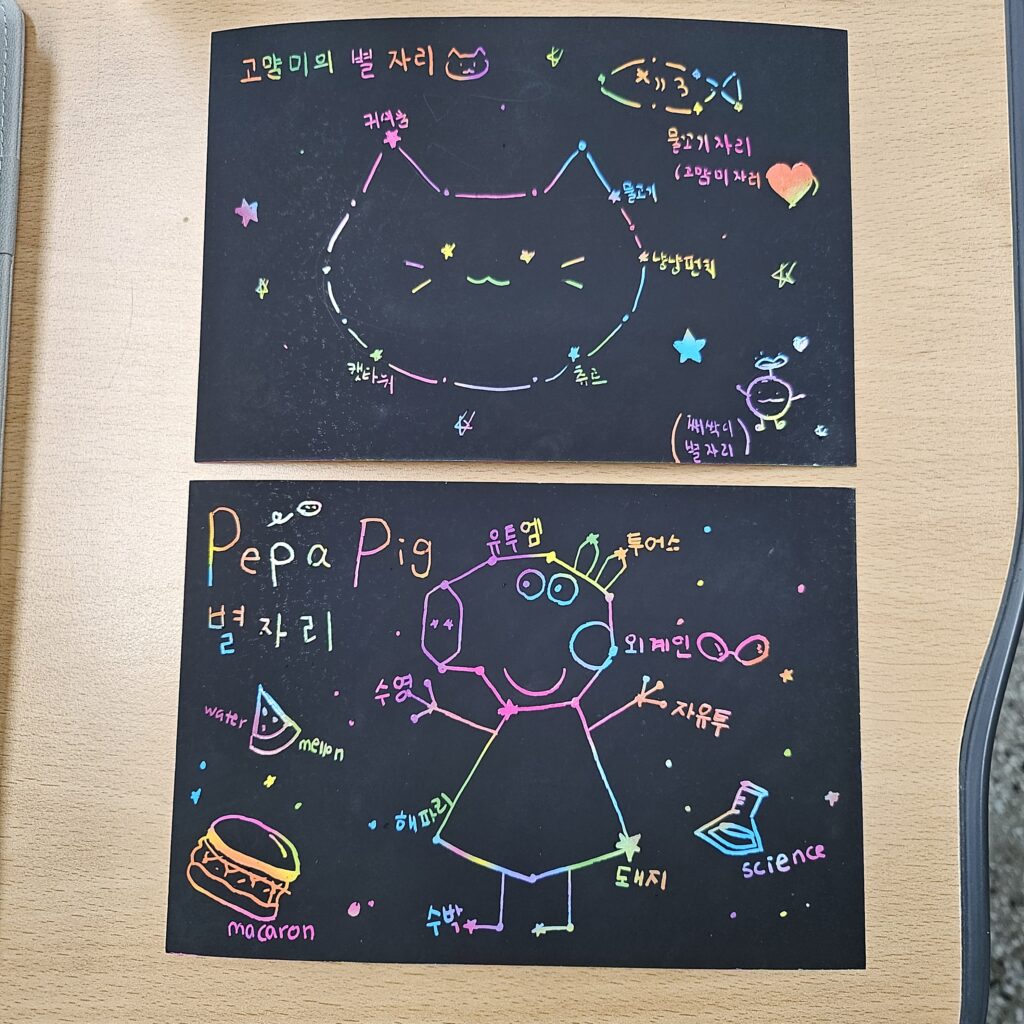 고먐미의 별자리
물고기자리
(고먐미자리
귀쉬움
물고기
냥냥펀치
캣타워
츄르
(쩨싹이
별자리)
Pepa Pig
별자리
유투엠
투어스
외계인
수영
자유투
water
mellon
해파리
돼지
science
수박
macaron